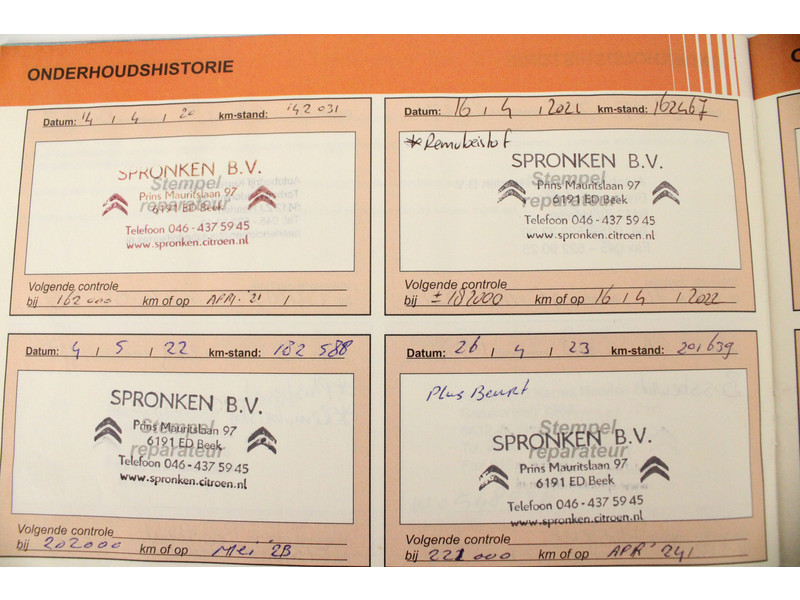 ONDERHOUDSHISTORIE
Datum: 14 / 4 / 20 km-stand: 142 031
SPRONKEN B.V.
Stempel
Prins Mauritslaan 97
reparateur
6191 ED Beek
Telefoon 046 - 437 59 45
www.spronken.citroen.nl
Volgende controle
bij 162000 km of op APRIL '21 /
Datum: 16 / 4 / 2021 km-stand: 162467
*Remvloeistof
SPRONKEN B.V.
Stempel
Prins Mauritslaan 97
reparateur
6191 ED Beek
Telefoon 046 - 437 59 45
www.spronken.citroen.nl
Volgende controle
bij ±182000 km of op 16 / 4 / 2022
Datum: 4 / 5 / 22 km-stand: 182 588
SPRONKEN B.V.
Stempel
Prins Mauritslaan 97
reparateur
6191 ED Beek
Telefoon 046 - 437 59 45
www.spronken.citroen.nl
Volgende controle
bij 202000 km of op Mei '23
Datum: 26 / 4 / 23 km-stand: 201639
Plus Beurt
Stempel
SPRONKEN B.V.
reparateur
Prins Mauritslaan 97
6191 ED Beek
Telefoon 046 - 437 59 45
www.spronken.citroen.nl
Volgende controle
bij 221000 km of op APR '24 /